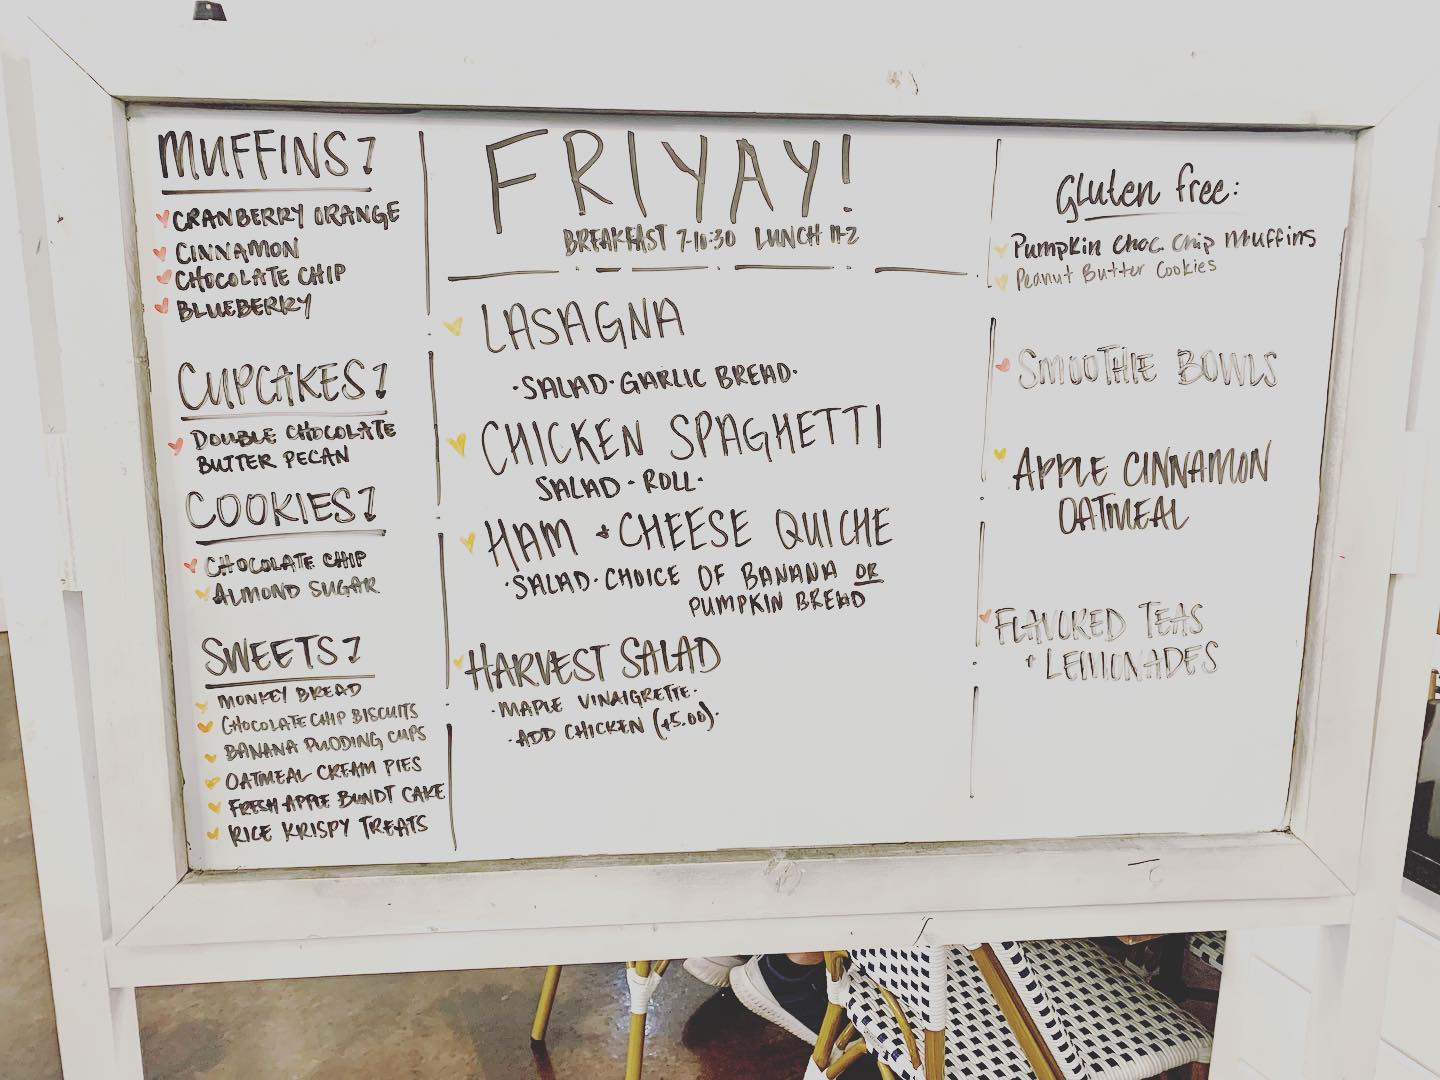 MUFFINS
CRANBERRY ORANGE
CINNAMON
CHOCOLATE CHIP
BLUEBERRY
CUPCAKES
DOUBLE CHOCOLATE
BUTTER PECAN
COOKIES
CHOCOLATE CHIP
ALMOND SUGAR
SWEETS
MONKEY BREAD
CHOCOLATE CHIP BISCUITS
BANANA PUDDING CUPS
OATMEAL CREAM PIES
FRESH APPLE BUNDT CAKE
RICE KRISPY TREATS
FRIYAY!
BREAKFAST 7-10:30 LUNCH 11-2
LASAGNA
·SALAD·GARLIC BREAD·
CHICKEN SPAGHETTI
SALAD·ROLL·
HAM + CHEESE QUICHE
·SALAD·CHOICE OF BANANA OR
PUMPKIN BREAD
HARVEST SALAD
·MAPLE VINAIGRETTE·
·ADD CHICKEN (+5.00)·
Gluten free:
Pumpkin Choc. Chip Muffins
Peanut Butter Cookies
SMOOTHIE BOWLS
APPLE CINNAMON
OATMEAL
FLAVORED TEAS
+ LEMONADES